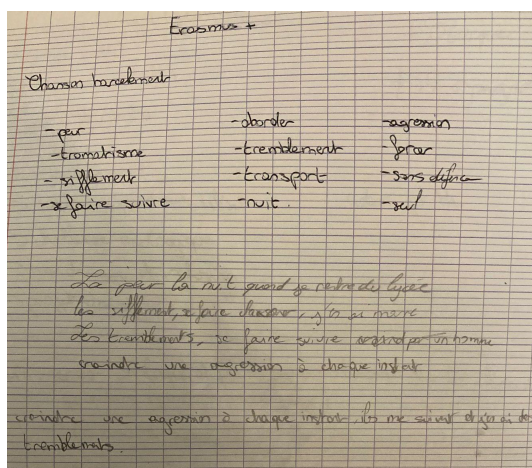 Erasmus +
Chanson harcelement
- peur
- tromatisme
- sifflement
- se faire suivre
- aborder
- tremblement
- transport
- nuit.
- agression
- forcer
- sans défence
- seul
La peur la nuit quand je rentre du lycée
les sifflement, se faire, j'en ai marre
Les tremblements, se faire suivre par un homme
craindre une agression à chaque instant
craindre une agression à chaque instant, ils me suivent et j'ai des
tremblements.